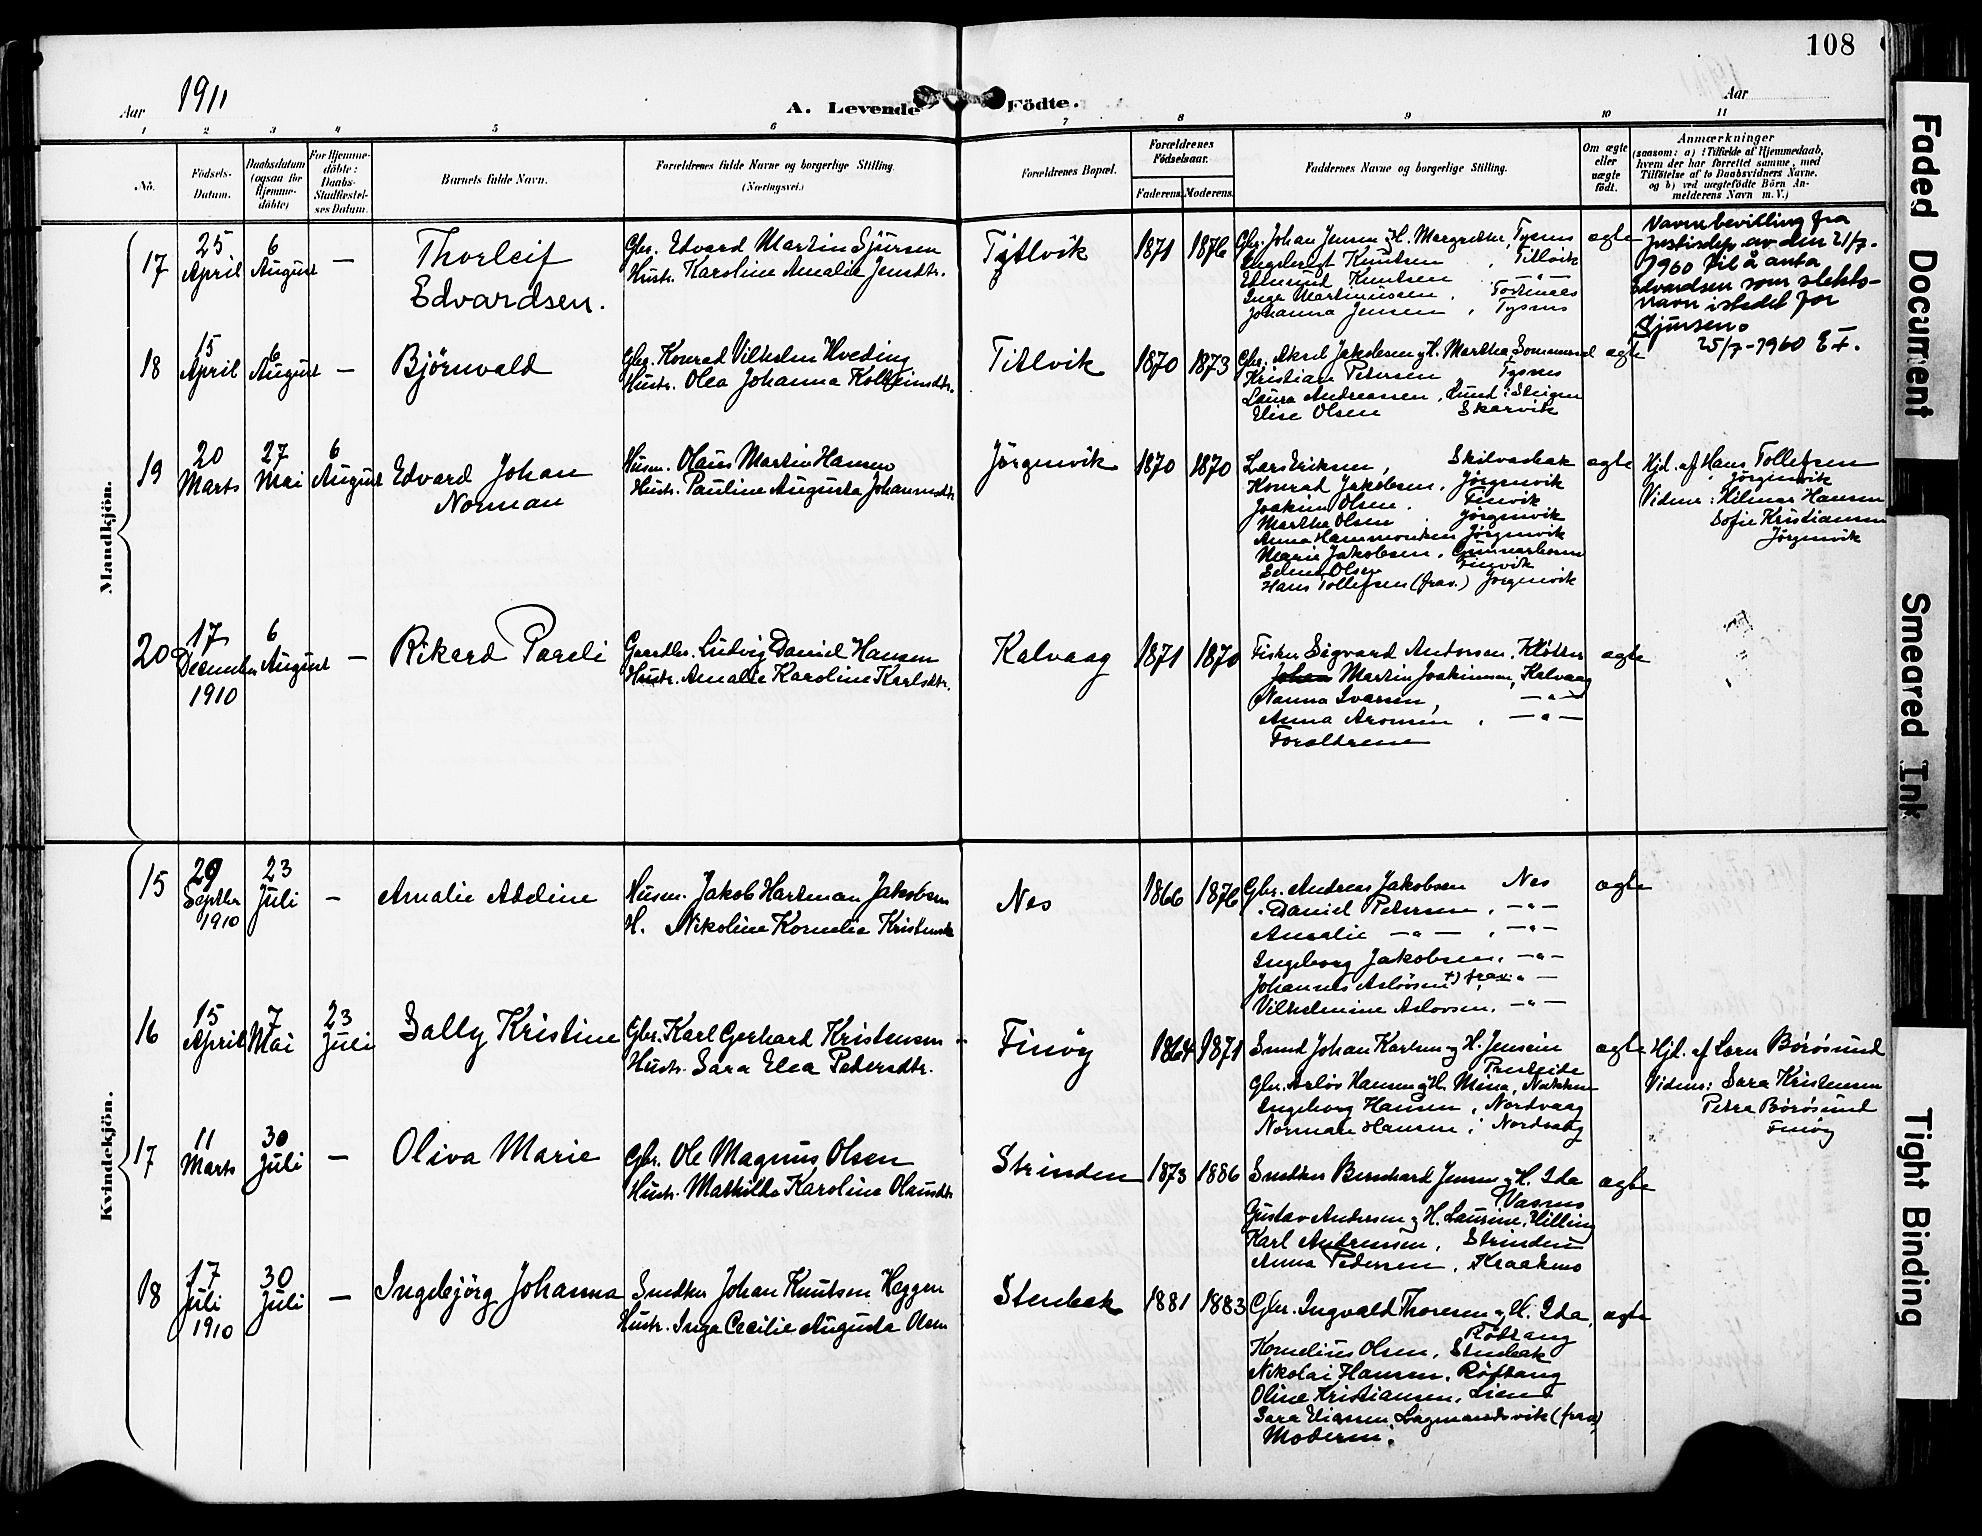 108
Aar 1911
A. Levende Födte.
Aar
1 2 3 4 5 6 7 8 9 10 11
No.
Födsels-
Datum.
Daabsdatum
(ogsaa for
Hjemme-
döbte)
For Hjemme-
döbte:
Daabs-
Stadfæstel-
ses Datum.
Barnets fulde Navn.
Forældrenes fulde Navne og borgerlige Stilling.
(Næringsvei.)
Forældrenes Bopæl.
Forældrenes
Födselsaar.
Faderens. Moderens.
Faddernes Navne og borgerlige Stilling.
Om ægte
eller
uægte
födt.
Anmærkninger
(saasom: a) i Tilfælde af Hjemmedaab,
hvem der har forrettet samme, med
Tilföielse af to Daabsvidners Navne,
og b) ved uægtefödte Börn An-
melderens Navn m.V.)
Mandkjön.
17
25
April
6
August
—
Thorleif
Edvardsen.
Gbr. Edvard Martin Sjursen
Hustr. Karoline Amalie Jensdtr.
Titlvik
1871
1876
Gbr. Johan Jensen & H. Margrethe, Tysnes
Engebregt Knutsen, Titlvik
Edmund Knutsen —"—
Inga Martinussen,
Johanna Jensen, Tysnes
ægte
Navnebevilling fra
justisdep. av den 21/7-
1960 til å anta
Edvardsen som slekts-
navn istedet for
Sjursen.
25/7-1960 E.F.
18
15
April
6
August
—
Bjørnvald
Gbr. Konrad Vilhelm Hveding
Hustr. Olea Johanna
Titlvik
1870
1873
Gbr. Aksel Jakobsen & H. Martha, Sommersel
Kristian Petersen Tysnes
Laura Andreassen, Lund i Steigen
Elise Olsen Skarvik
ægte
19
20
Marts
27
Mai
6
August
Edvard Johan
Norman
Husm. Olaus Martin Hansen
Hustr. Pauline Augusta Johannesdtr
Jörgenvik
1870
1870
Lars Eriksen, Skilvasbak
Konrad Jakobsen, Jörgenvik
Joakim Olsen, Finvik
Martha Olsen Jörgenvik
Anna Hammoniken Jörgenvik
Marie Jakobsen, Gunnarheim
Selma Olsen Finvik
Hans Tollefsen (frav.) Jörgenvik
ægte
Hjd. af Hans Tollefsen
Jörgenvik
Vidner: Hilmar Hansen
Sofie Kristiansen
Jörgenvik
20
17
December
1910
6
August
—
Rikard Pareli
Gaardbr. Ludvig Daniel Hansen
Hustr. Amalie Karoline Karlsdtr.
Kalvaag
1871
1870
Fisker Sigvard Andorsen, Kløtten
Johan Martin Joakimsen, Kalvaag
Nanna Ivarsen, —"—
Anna Aronsen, —"—
Forældrene
ægte
Kvindekjön.
15
29
Septbr
1910
23
Juli
—
Amalie Adeline
Husm. Jakob Hartman Jakobsen
H. Nikoline Kornelie Kristensdtr
Nes
1866
1876
Gbr. Andreas Jakobsen Nes
Daniel Petersen, —"—
Amalie —"—, —"—
Ingeborg Jakobsen, —"—
Johannes Aslövsen +) frav. —"—
Vilhelmine Aslovsen, —"—
ægte
16
15
April
7
Mai
23
Juli
Sally Kristine
Gbr. Karl Gerhard Kristensen
Hustr. Sara Elea Pedersdtr.
Finöy
1864
1871
Smed Johan Karlsen og H. Jensine
Presteide
Gbr. Aslöv Hansen & H. Mina, Nakken
Ingeborg Hansen, Nordvaag
Norman Hansen, Nordvaag
ægte
Hjd. af Lorn Börösund
Vidner: Sara Kristensen
Petra Börösund
Finöy
17
11
Marts
30
Juli
—
Oliva Marie
Gbr. Ole Magnus Olsen
Hustr. Mathilde Karoline Olausdtr
Strinden
1873
1886
Snedker Bernhard Jensen & H. Ida
Vasnes
Gustav Andersen & H. Laurine, Hilling
Karl Andreassen, Strinden
Anna Pedersen, Kraakmo
ægte
18
17
Juli
1910
30
Juli
—
Ingebjörg Johanna
Snedker Johan Knutsen Haggen
Hustr. Inga Cecilie Augusta Olsen
Stenbak
1881
1883
Gbr. Ingvald Thoresen & H. Ida,
Röttang
Kornelius Olsen, Stenbak
Nikolai Hansen, Röttang
Oline Kristiansen, Lien
Sara Eliassen, Lagmandsvik (frav.)
Moderen.
ægte
Faded Document
Smeared Ink
Tight Binding